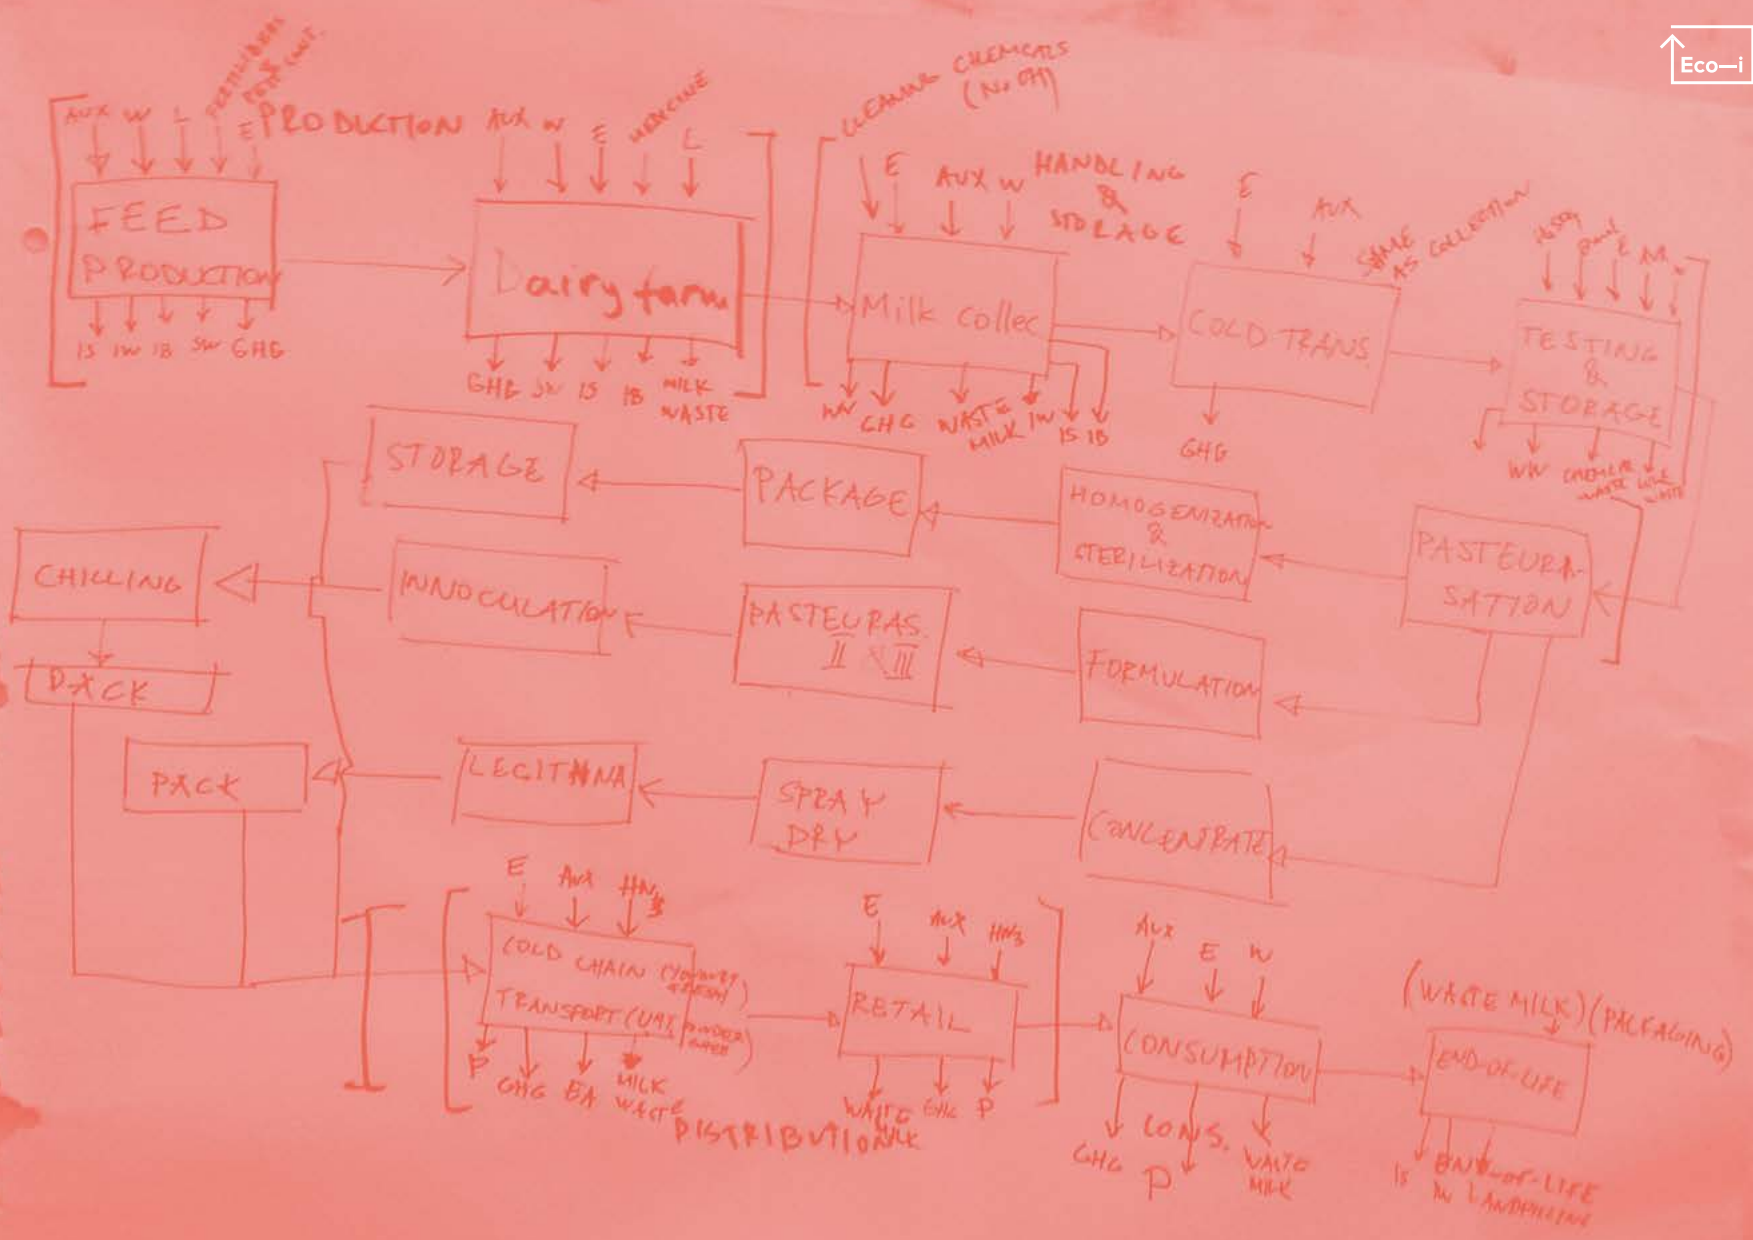 Eco—i
AUX W L E
PRODUCTION
FEED
PRODUCTION
IS IW IB SW GHG
AUX W E MEDICINE L
Dairy farm
GHG SW IS IB MILK
WASTE
CLEANING CHEMICALS
E AUX W
HANDLING
&
STORAGE
Milk collec
WW GHG WASTE
MILK IW IS IB
E AUX
SAME
AS COLLECTION
COLD TRANS.
GHG
TESTING
&
STORAGE
WW
WASTE
STORAGE
PACKAGE
HOMOGENIZATION
&
STERILIZATION
PASTEURI-
SATION
CHILLING
INNOCULATION
PASTEURAS.
II & III
FORMULATION
PACK
PACK
LEGITHNA
SPRAY
DRY
CONCENTRATE
E AUX HN3
COLD CHAIN
TRANSPORT (UHT,
P GHG EA MILK
WASTE
DISTRIBUTION
E AUX HN3
RETAIL
WASTE
MILK GHG P
AUX E W
CONSUMPTION
GHG CONS.
P WASTE
MILK
(WASTE MILK) (PACKAGING)
END-OF-LIFE
IS END-OF-LIFE
IW LANDFILLING